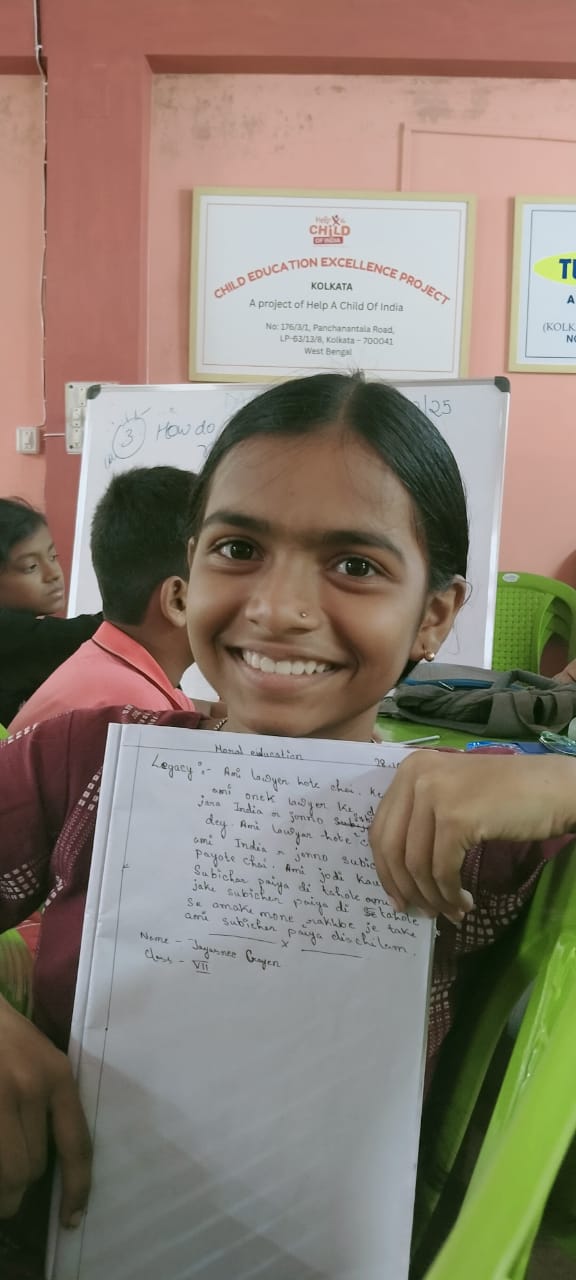 Help A
CHILD
OF INDIA
CHILD EDUCATION EXCELLENCE PROJECT
KOLKATA
A project of Help A Child Of India
No: 176/3/1, Panchanantala Road,
LP-63/13/8, Kolkata - 700041
West Bengal
TU
A
(KOLK
NO
3 How do
/25
Moral education
Legacy :- Ami lawyer hote chai.
ami onek lawyer ke
jara India r jonno
dey. Ami lawyer hote
ami India r jonno subic
payote chai. Ami jodi kau
Subichar paiya di tahole ami
jake subichar paiya di se tahole
se amake mone rakhbe je take
ami subichar paiya dischilam.
x
Name - Jayasree Gayen
Class - VII